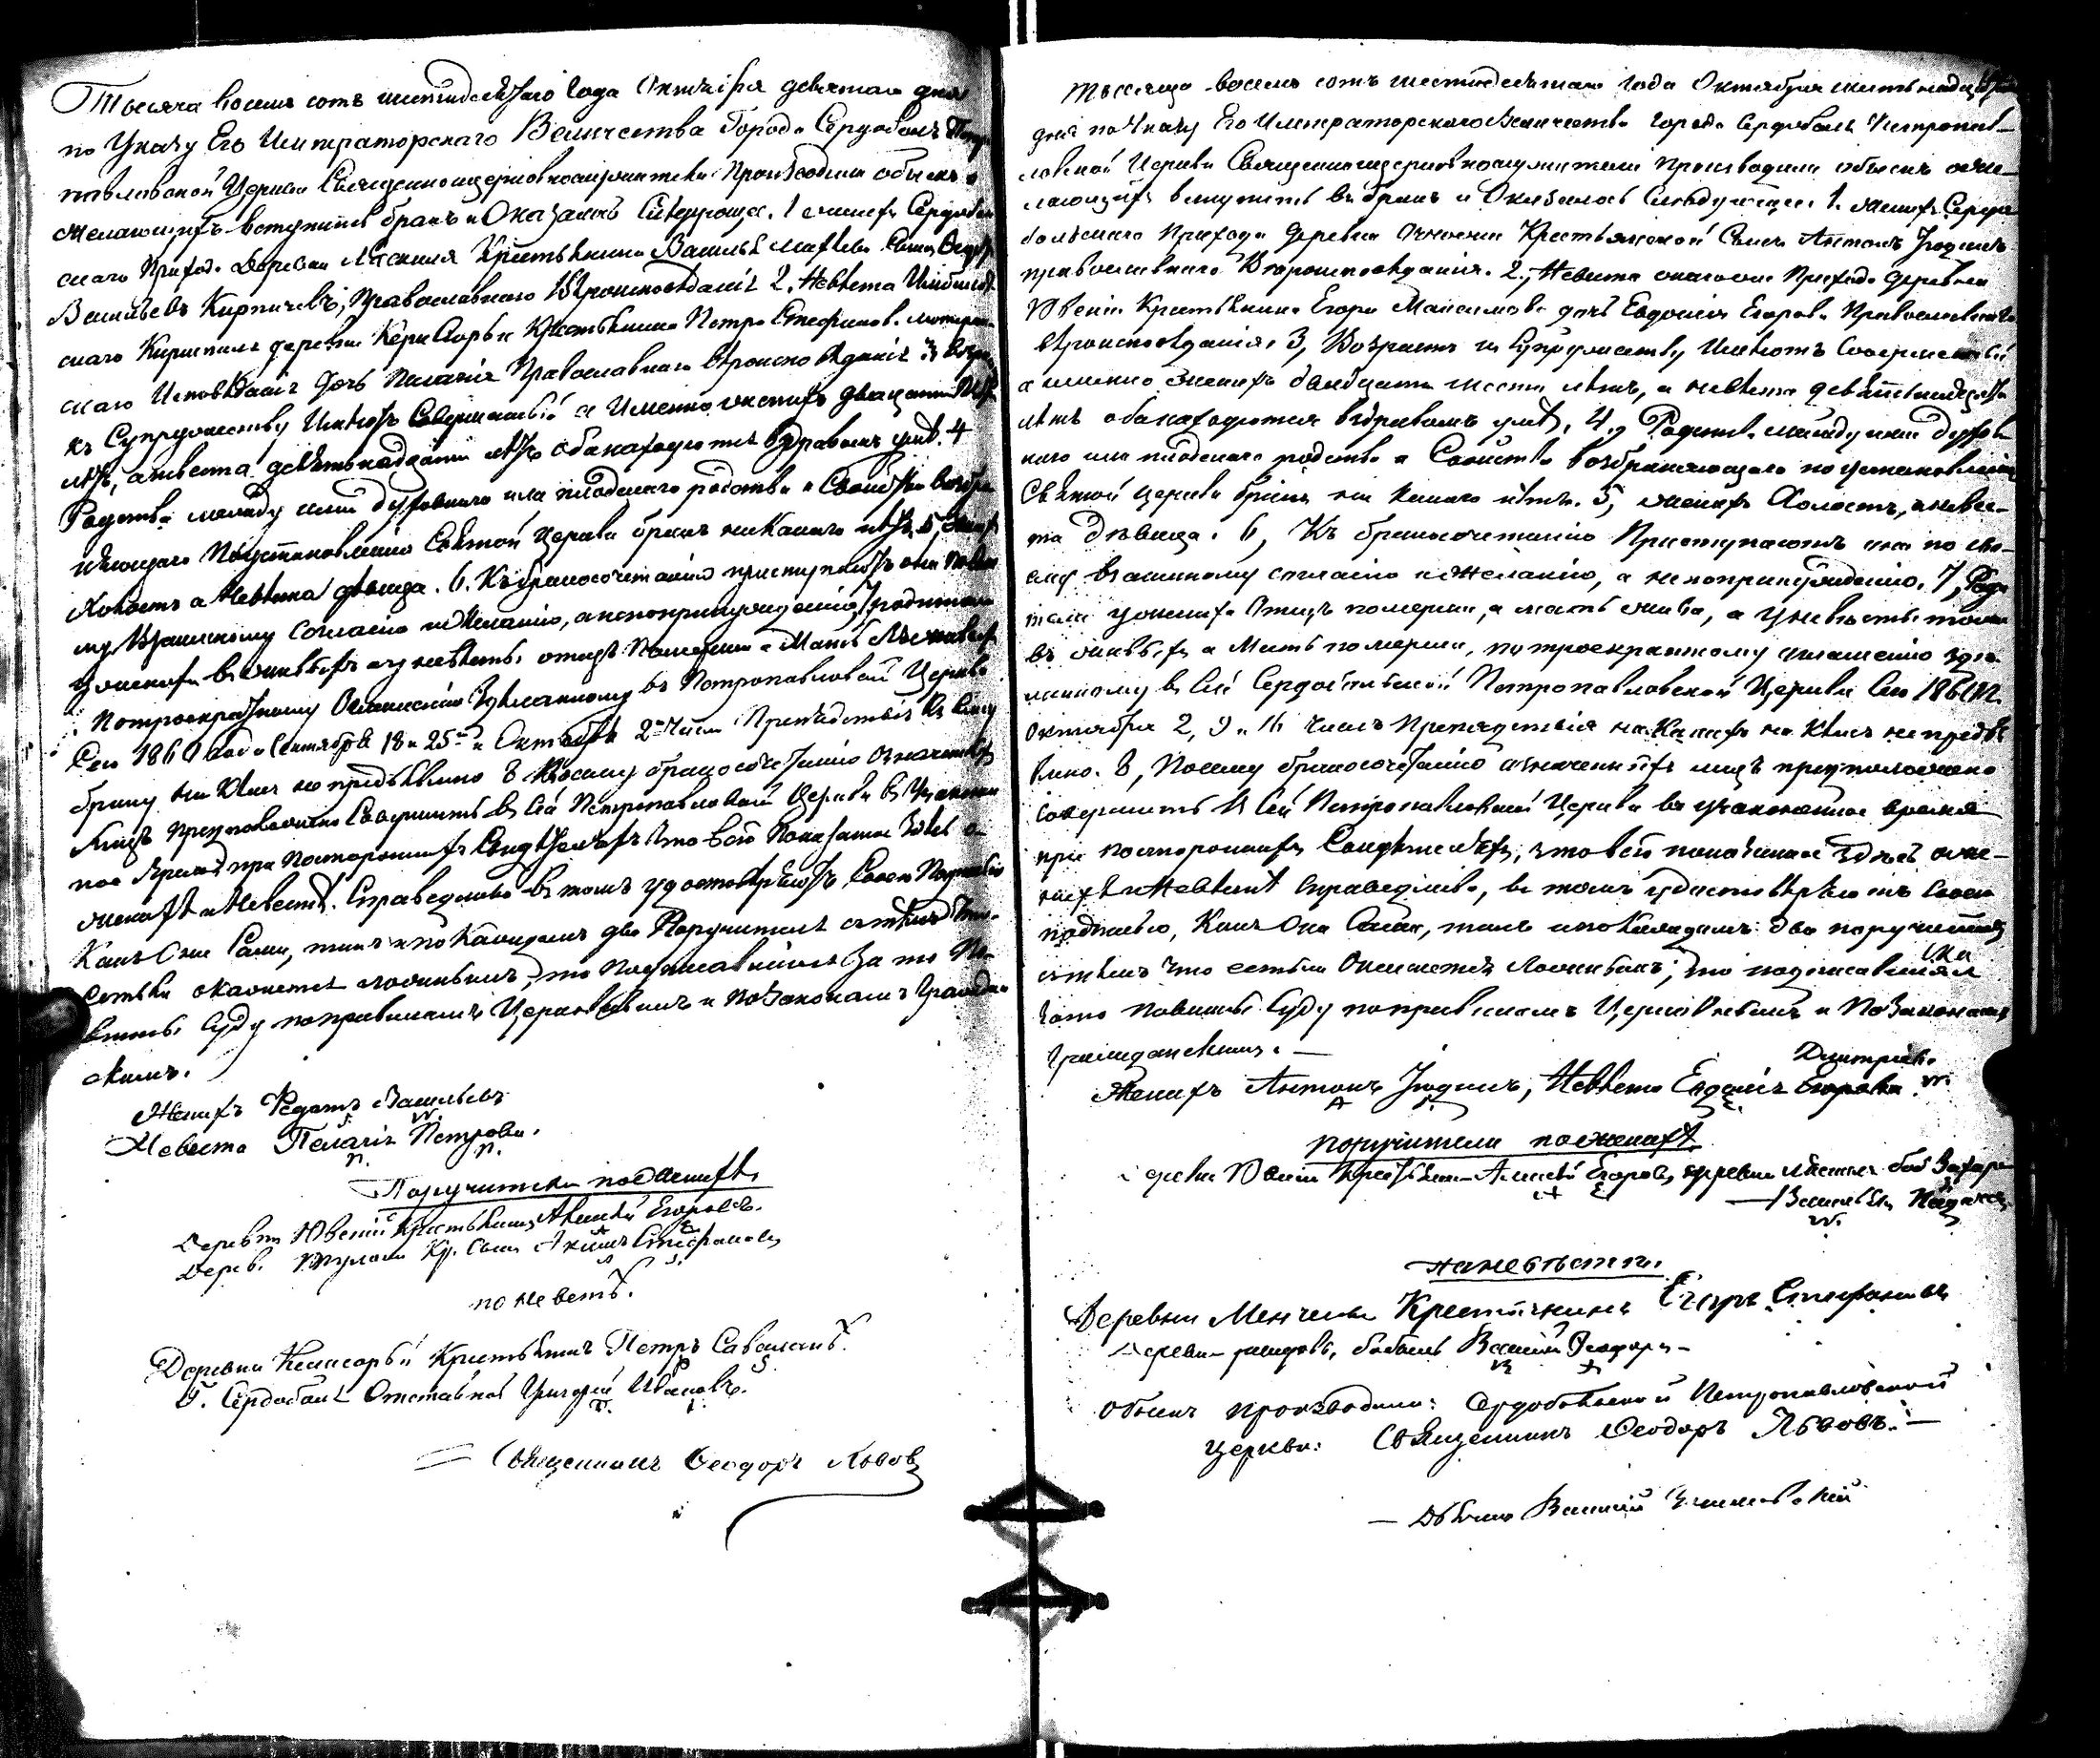 Тысяча восемь сотъ шестидесятаго года Октября девятаго дня
по Указу Его Императорскаго Величества города Сердоболь Петро
павловской Церкви Священноцерковнослужители производили обыскъ о
желающихъ вступить бракъ и Оказалось следующее. 1 женихъ Сердоболь
скаго Прихода деревни Ляскеля Крестьянина Василья сынъ
Васильевъ Кирпичевъ, Православнаго Вѣроисповѣданія 2. Невѣста
скаго Кирхшпиля деревни Крестьянина Петра Стефанова лютеран
скаго Исповѣданія дочь Пелагія Православнаго вѣроисповѣданія 3 возрастъ
къ Супружеству Имѣютъ Совершенный а Именно женихъ двадцати
лѣтъ, а невѣста девятьнадцати лѣтъ оба находются въ здравомъ умѣ. 4
Родства между ими духовнаго или плодскаго родства и Свойства возбра
няющаго По установленію Святой церкви бракъ никакого нѣтъ, 5, Женихъ
Холостъ а Невѣста дѣвица. 6. Къ бракосочетанію приступаютъ они по свое
му Взаимному Согласію и Желанію, а не по принужденію, 7 родители
у жениха в живыхъ а у невѣсты отецъ Померши а Мать въ живыхъ
По троекратному Оглашенію зделанному въ Петропавловской Церкви
Сего 1860 года Сентября 18 и 25го и Октября 2го Числ Препядствія къ Сему
браку ни Кѣмъ не предъявлено 8 По сему бракосочетанію означенныхъ
Лицъ предположено Совершить въ Сей Петропавловской Церкви въ Узаконен
ное Время при Постороннихъ Свидѣтеляхъ Что все Показанное Здѣсь о
женихѣ и Невестѣ. Справедливо въ томъ удостовѣряютъ Своею Подписью
Какъ Они Сами, такъ и по Каждомъ два Поручителя съ тѣмъ что
естьли окажется ложнымъ, то Подписавшіеся За то По
винны Суду по правиламъ Церковнымъ и по Законамъ Граждан
скимъ.
Женихъ Федотъ Васильевъ
Невеста Пелагія Петрова.
Поручители по Женихѣ
Деревни Ювеній Крестьянинъ Алексѣй Егоровъ.
Дерев. Кр. сынъ Акимъ Стефановъ
по Невестѣ.
Деревни Крестьянинъ Петръ Саволаевъ
Г. Сердоболя Отставной Григорей Ивановъ.
Священникъ Феодоръ Львовъ
Тысяща восемь сотъ шестидесятаго года Октября шестьнадцатаго
дня по Указу Его Императорскаго Величества города Сердоболь Петропав-
ловской Церкви Священноцерковнослужители производили обыскъ о же-
лающихъ вступить въ бракъ и Оказалось Слѣдующее: 1. женихъ Сердо
больскаго Прихода деревни Крестьянской Сынъ Антонъ Іюдинъ
православнаго Вѣроисповѣданія. 2, Невѣста онагоже Прихода деревни
Ювеніи Крестьянина Егора Максимова дочь Евдокія Егорова Православнаго
вѣроисповѣданія, 3, Возрастъ къ Супружеству Имѣютъ Совершенный
а именно женихъ двадцати шести лѣтъ, а невѣста девятьнадцати
лѣтъ оба находются въ здравомъ умѣ, 4, Родства между ими духов
наго или плодскаго родства и Свойства возбраняющаго по установленію
Святой церкви бракъ ни какого нѣтъ. 5, женихъ Холостъ, а невѣс-
та дѣвица. 6, Къ бракосочетанію Приступаютъ они по сво-
ему взаимному согласію и Желанію, а не по принужденію. 7, Роди
тели у жениха Отецъ померши, а мать жива, а у невѣсты отецъ
въ живыхъ а Мать померши, по троекратному оглашенію зде-
ланному въ Сей Сердобольской Петропавловской Церкви Сего 1860 г.
Октября 2, 9 и 16 Числъ Препядствія никакихъ ни Кѣмъ не предъя
влено. 8, Посему бракосочетанію означенныхъ лицъ предположено
совершить въ Сей Петропавловской Церкви въ узаконенное время
при постороннихъ Свидѣтеляхъ, что всё показанное Здѣсь о же-
нихѣ и Невѣстѣ справедливо, въ томъ удостовѣряютъ своею
подписью, Какъ Они Сами, такъ и по Каждомъ два поручителя
съ тѣмъ что естьли Окажется Ложнымъ, то подписавшіяся
за то повинны Суду по правиламъ Церковнымъ и По Законамъ
Гражданскимъ. —
Женихъ Антонъ Іюдинъ, Невѣста Евдокія Егорова Дмитріева
поручители по женихѣ
деревни Ювеніи Крестьянинъ Алексѣй Егоровъ, деревни
по невѣстѣ.
Деревни Крестьянинъ Егоръ Стефановъ
деревни бобыль Василій Феодоровъ
Обыскъ производили: Сердобольской Петропавловской
церкви: Священникъ Феодоръ Львовъ. —
— Дьячекъ Василій